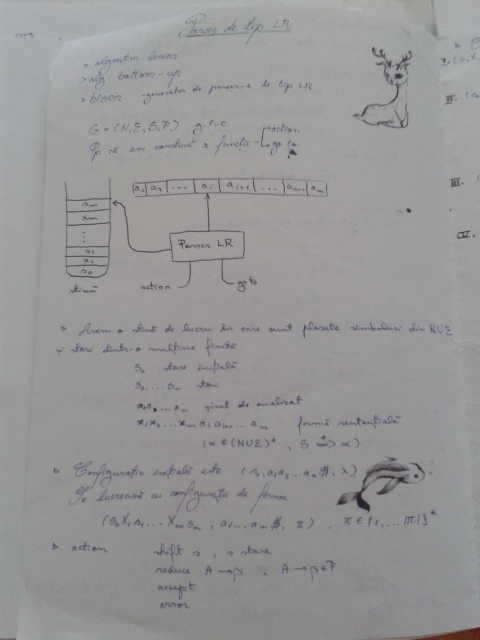 Parser de tip LR
> algoritm liniar
> alg bottom-up
> bison generator de parser-e de tip LR
G = (N, Σ, S, P) g.i.c.
Pp că am construit 2 funcții action
goto
a1 a2 ... ai ai+1 ... an-1 an
sm
xm
⋮
s1
x1
s0
Parser LR
stivă
action
goto
Avem o stivă de lucru în care sunt plasate simboluri din N∪Σ
și stări dintr-o mulțime finită
s0 stare inițială
s1, ... sm stări
a1a2 ... an șirul de analizat
x1x2 ... xm ai ai+1 ... an formă sentențială
(α ∈ (N∪Σ)*, S ⇒ α)
Configurația inițială este (s0, a1a2 ... an $, λ)
Se lucrează cu configurații de forma
(s0 X1 s1 ... Xm sm, ai ... an $, π), π ∈ {1, ... |P|}*
action shift s, s stare
reduce A → β, A → β ∈ P
accept
error